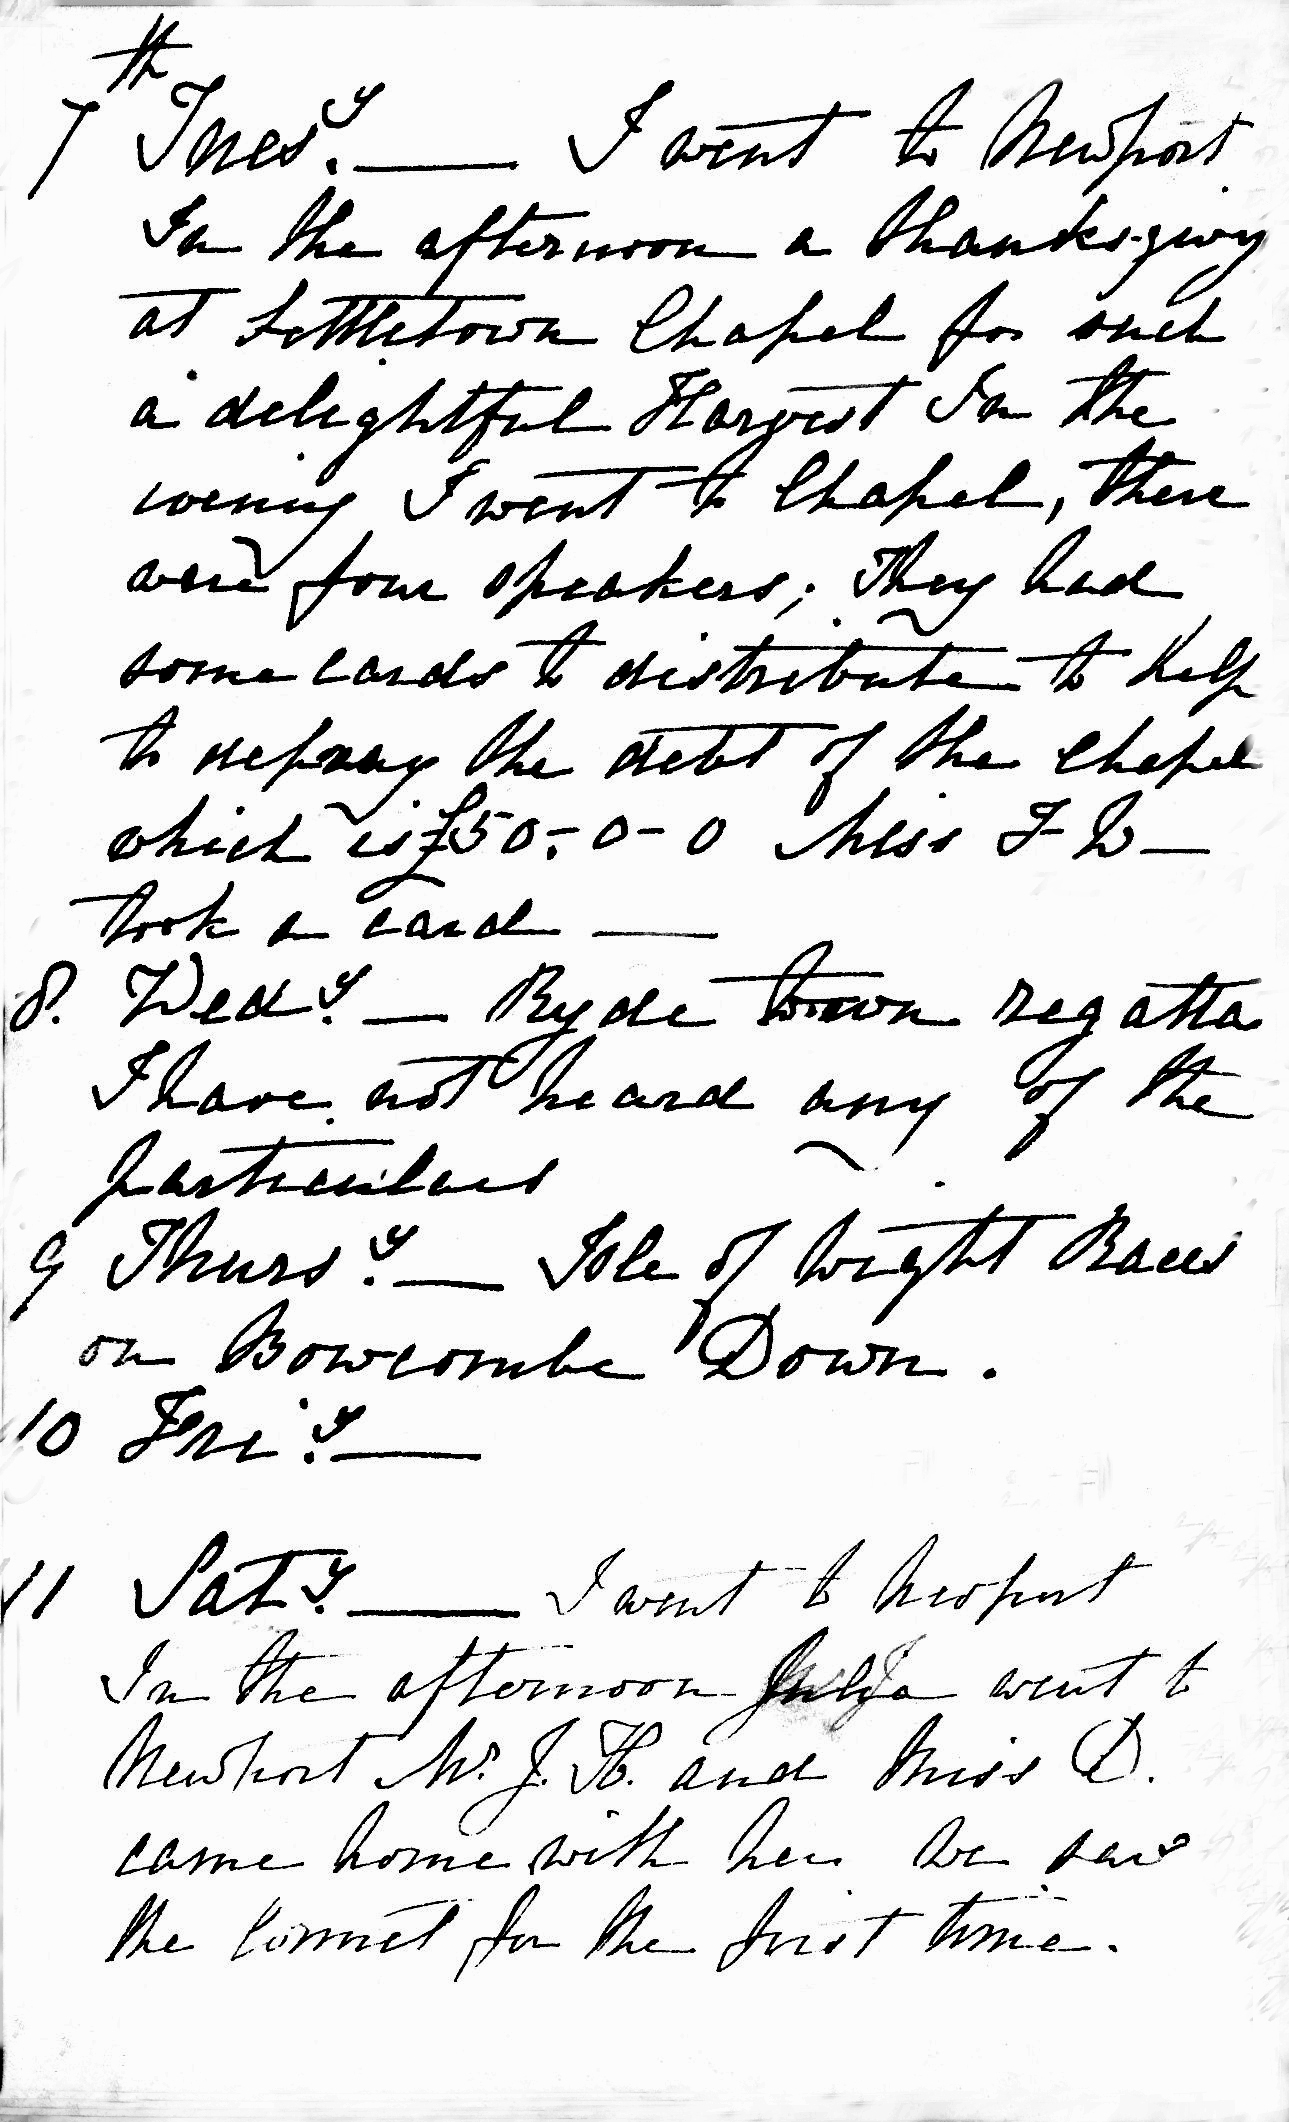 7th Tues.y — I went to Newport
In the afternoon a thanks-giving
at Littletown Chapel for such
a delightful Harvest In the
evening I went to Chapel, there
were four speakers; They had
some cards to distribute to help
to repay the debt of the Chapel
which is £50-0-0 Miss F W—
took a card —
8. Wed.y — Ryde town regatta
I have not heard any of the
particulars
9 Thurs.y — Isle of Wight Races
on Bowcombe Down.
10 Fri.y —
11 Sat.y — I went to Newport
In the afternoon Julia went to
Newport Mr. J. H. and Miss D.
came home with her We saw
the Commet for the first time.